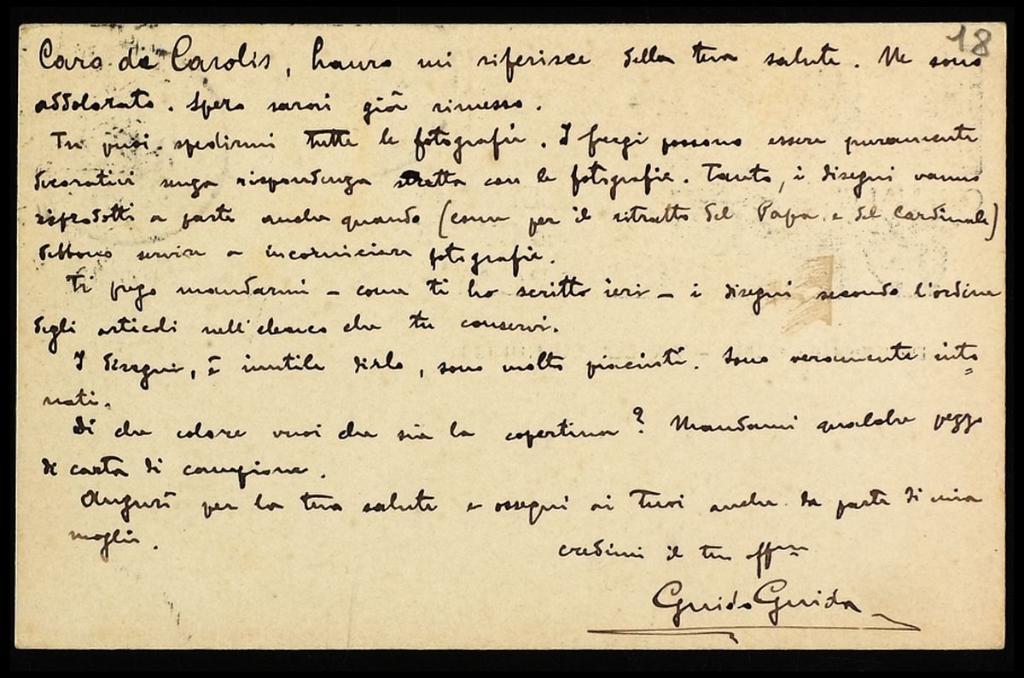 18
Caro de Carolis, Lauro mi riferisce della tua salute. Ne sono
addolorato. Spero sarai già rimesso.
Tu puoi spedirmi tutte le fotografie. I fregi possono essere puramente
decorativi senza rispondenza stretta con le fotografie. Tanto, i disegni vanno
riprodotti a parte anche quando (come per il ritratto del Papa e del Cardinale)
debbono servire a incorniciare fotografie.
Ti prego mandarmi – come ti ho scritto ieri – i disegni secondo l'ordine
degli articoli nell'elenco che tu conservi.
I disegni, è inutile dirlo, sono molto piaciuti. Sono veramente into=
nati.
Di che colore vuoi che sia la copertina? Mandami qualche pezzo
di carta di campione.
Auguri per la tua salute e ossequi ai tuoi anche da parte di mia
moglie.
credimi il tuo affmo
Guido Guida